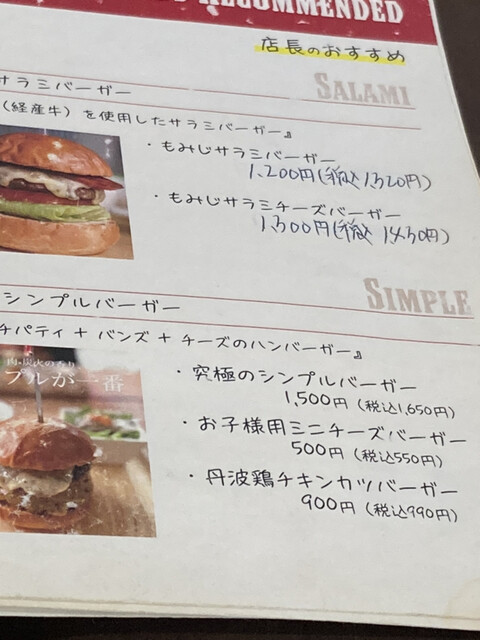 RECOMMENDED
店長のおすすめ
サラミバーガー
SALAMI
(経産牛)を使用したサラミバーガー』
・もみじサラミバーガー
1,200円(税込1320円)
・もみじサラミチーズバーガー
1,300円(税込1430円)
シンプルバーガー
SIMPLE
チパティ+バンズ+チーズのハンバーガー』
肉・炭火の香り
プルが一番
・究極のシンプルバーガー
1,500円(税込1,650円)
・お子様用ミニチーズバーガー
500円(税込550円)
・丹波鶏チキンカツバーガー
900円(税込990円)